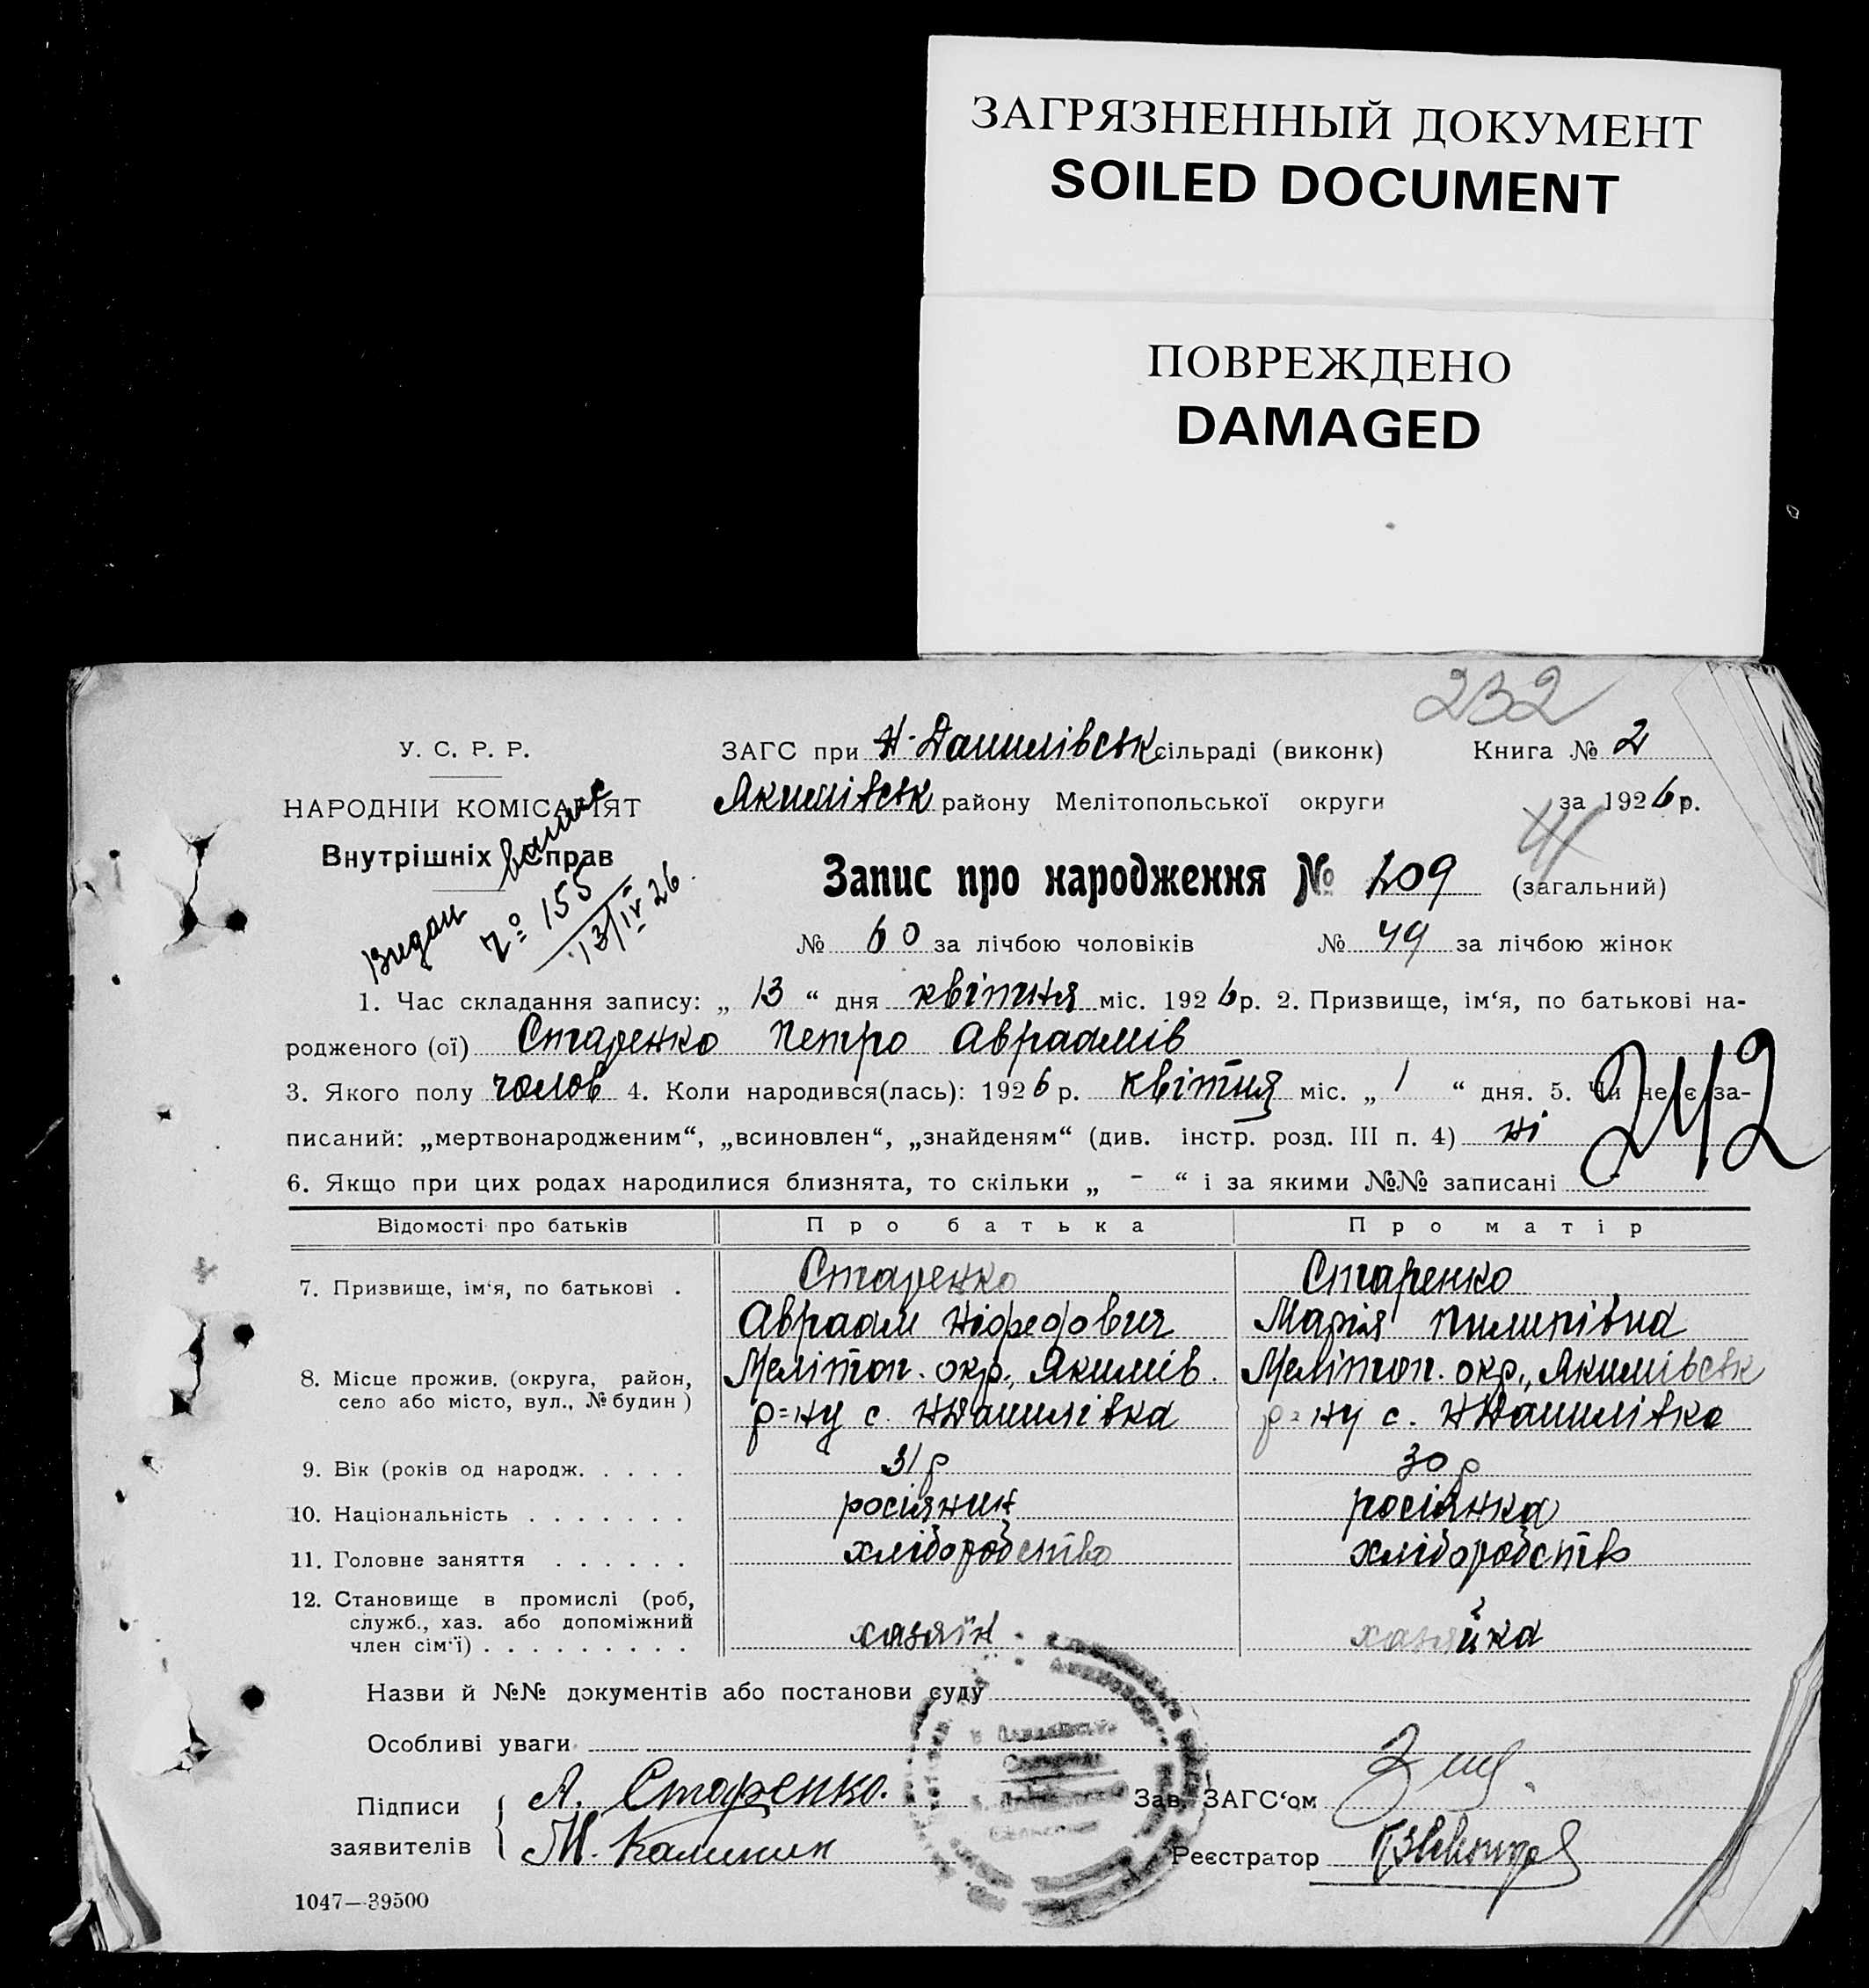 ЗАГРЯЗНЕННЫЙ ДОКУМЕНТ
SOILED DOCUMENT
ПОВРЕЖДЕНО
DAMAGED
232
У. С. Р. Р.
ЗАГС при Н-Данилівськ сільраді (виконк) Книга № 2
НАРОДНІЙ КОМІСАРІЯТ
Якимівськ району Мелітопольської округи за 1926 р.
Внутрішніх Справ
Видан
№ 155
13/IV 26.
Запис про народження № 109 (загальний)
№ 60 за лічбою чоловіків № 49 за лічбою жінок
1. Час складання запису: „ 13 “ дня квітня міс. 1926 р. 2. Призвище, ім‘я, по батькові на-
родженого (ої) Старенко Петро Авраамів
3. Якого полу чолов 4. Коли народився(лась): 1926 р. квітня міс. „ 1 “ дня. 5. Чи не є за-
писаний: „мертвонародженим“, „всиновлен“, „знайденям“ (див. інстр. розд. III п. 4) ні
242
6. Якщо при цих родах народилися близнята, то скільки „ - “ і за якими №№ записані
Відомості про батьків Про батька Про матір
7. Призвище, ім‘я, по батькові . Старенко Старенко
Авраам Ніфедович Марія Пилипівна
8. Місце прожив. (округа, район, Мелітоп. окр., Якимів. Мелітоп. окр., Якимівськ
село або місто, вул., № будин ) р=ну с. НДанилівка р=ну с. НДанилівка
9. Вік (років од народж. . . . . 31 р 30 р
10. Національність . . . . . . . росіянин росіянка
11. Головне заняття . . . . . . хліборобство хліборобств
12. Становище в промислі (роб,
служб., хаз. або допоміжний
член сім‘ї) . . . . . . . . . хазяїн хазяйка
Назви й №№ документів або постанови суду
Особливі уваги
Підписи А. Старенко.
Зав. ЗАГС‘ом
заявителів М. Калинин
Реєстратор
1047—39500